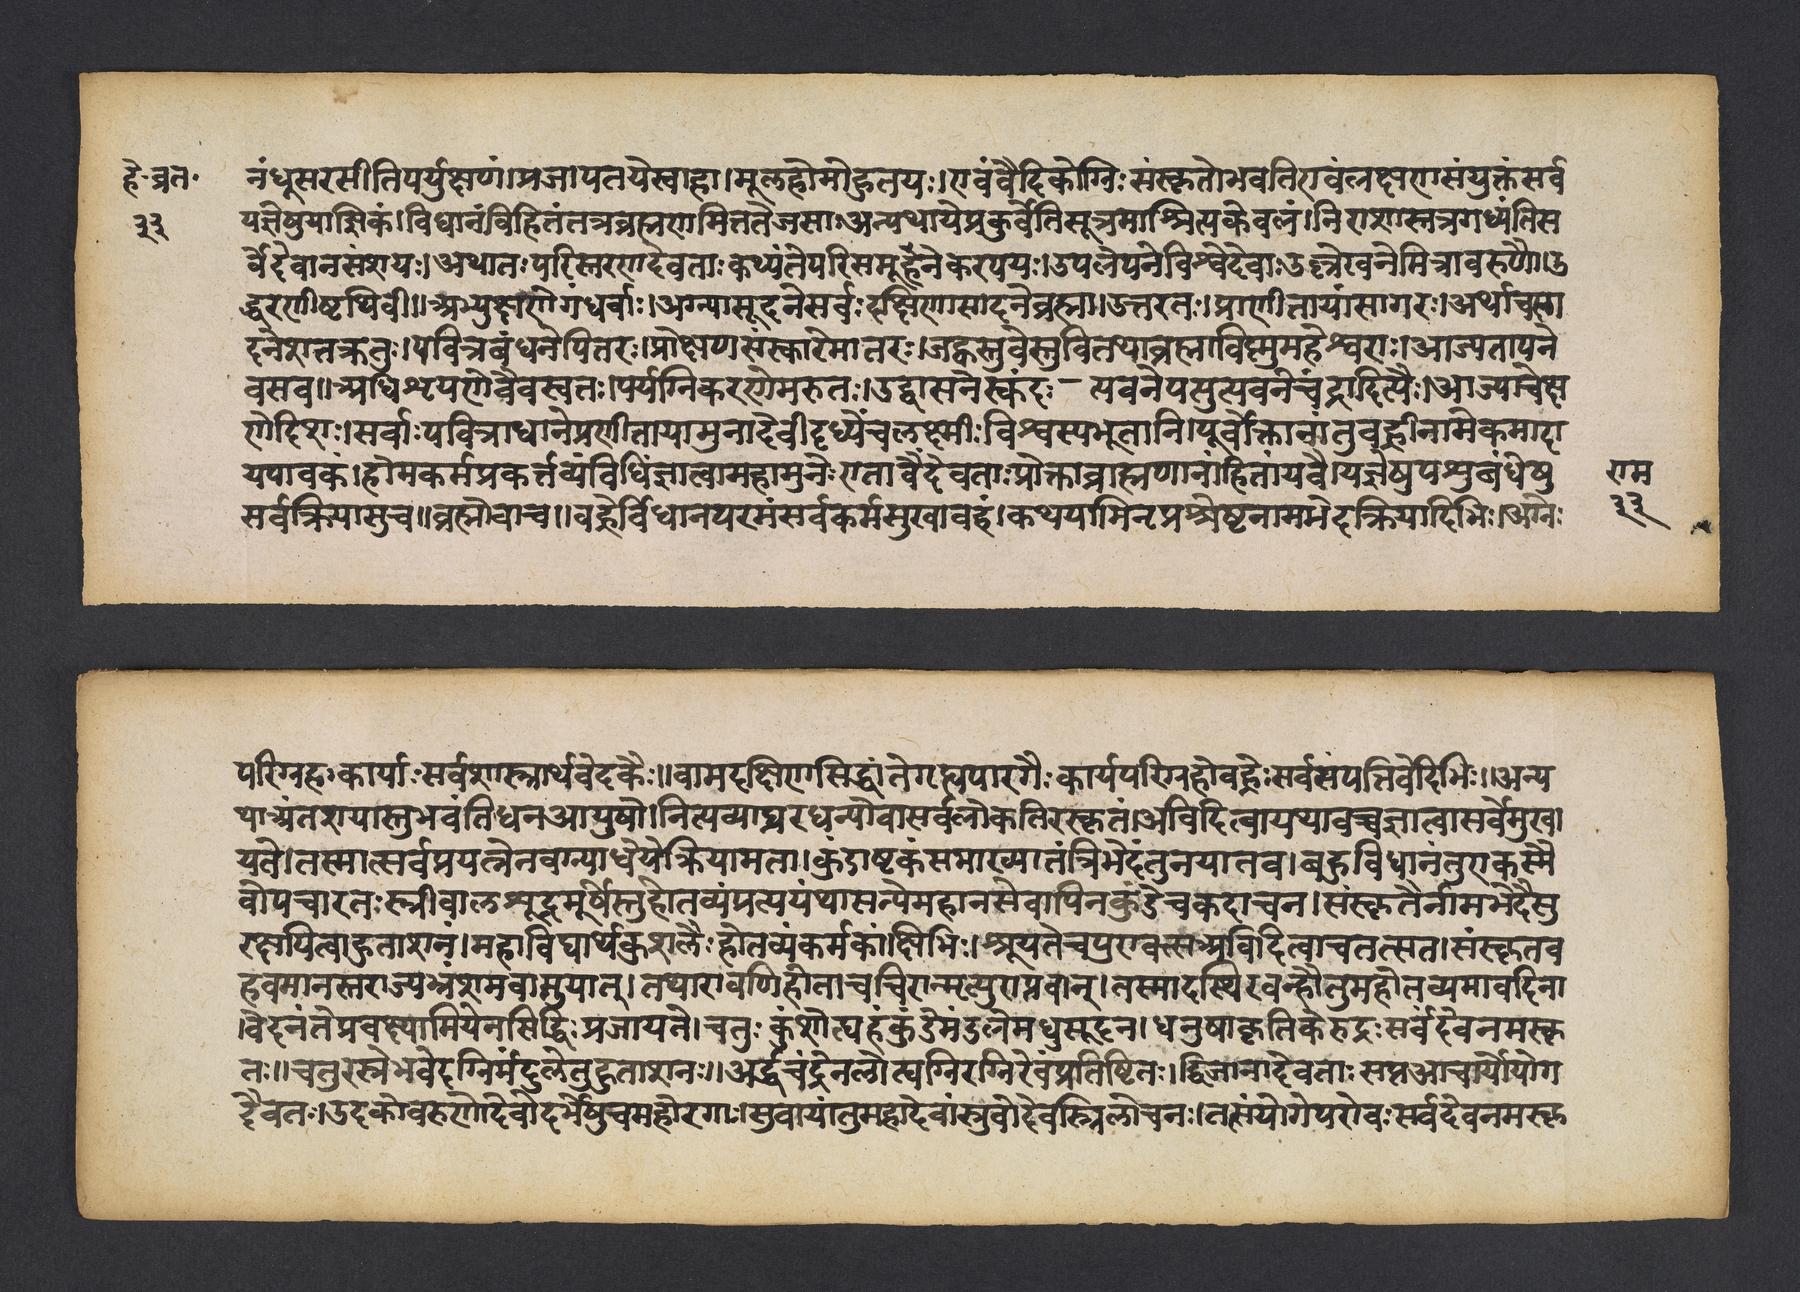 है॰ व्रत॰
३३
नंधूसरसीतिपर्युक्षणं।प्रजापतयेस्वाहा।मूलहोमोहुतयः।एवंवैदिकोग्निःसंस्कृतोभवतिएवंलक्षणसंयुक्तंसर्व
यज्ञेषुयाज्ञिकं।विधानंविहितंतत्रब्रह्मणामिततेजसा।अन्यथायेप्रकुर्वंतिसूत्रमाश्रित्यकेवलं।निराशास्तत्रगछ्यंतिस
र्वेदेवानसंशयः।अथातःपरिस्तरणदेवताःकथ्यंतेपरिसमूहनेकश्यपः।उपलेपनेविश्वेदेवाःउल्लेखनेमित्रावरुणौ।उ
द्धरणेपृथिवी॥अभ्युक्षणेगंधर्वाः।अग्न्यासूदनेसर्वःदक्षिणासादनेब्रह्मा।उत्तरतः।प्राणीतायांसागरः।अर्थाचसा
दनेशतक्रतुः।पवित्रबंधनेपितरः।प्रोक्षणसंस्कारेमातरः।जह्वस्तुवेस्तुवितथाब्रह्माविष्णुमहेश्वराः।आज्यतापने
वसव॥अधिशृपणेवैवस्वतः।पर्यग्निकरणेमरुतः।उद्वासनेस्कंदः–त्पवनेपसुत्पवनेचंद्रादित्यैः।आज्यावेक्ष
णेदिशः।सर्वाःपवित्राधानेप्रणीतायामुनादेवीदृध्येंचलक्ष्मीःविश्वस्यभूतानि।पूर्वोक्तानांतुवह्नीनामेकमादा
यपावकं।होमकर्मप्रकर्त्तव्यंविधिंज्ञात्वामहामुने।एतावैदेवताःप्रोक्ताब्राह्मणानांहितायवै।यज्ञेषुपशुबंधेषु
सर्वक्रियासुच॥ब्रह्मोवाच॥वह्नेर्विधानपरमंसर्वकर्मसुखावहं।कथयामिनृपश्रेष्टनामभेदक्रियादिभिः।अग्नेः
राम
३३
परिग्रहःकार्याःसर्वशास्त्रार्थवेदकैः॥वामदक्षिणसिद्धांतेगह्यपारगैःकार्यपरिग्रहोवह्नेःसर्वसंपत्तिवेदिभिः॥अन्य
थाअंतशयास्तुभवंतिधनआयुषो।नित्यव्याघ्रधन्योवासर्वलोकतिरस्कृतं।अविदित्वायथावच्चज्ञात्वासर्वेमुखा
यते।तस्मात्सर्वप्रयत्नेनवग्न्याधेयेक्रियामता।कुंडाष्टकंसमाख्यातंत्रिभेदंतुनयातव।बहुविधानंतुएकस्मै
वोपचारतःस्त्रीबालशूद्रमूर्षैस्तुहोतव्यंपत्ययंथासन्येमहानसेवापिनकुंडेचकदाचन।संस्कृतैर्नामभेदैसु
रक्षापित्वाहुताशनं।महाविघार्थकुशलैःहोतव्यंकर्मकांक्षिभिः।श्रूयतेचपुरावत्सअविदित्वाचतत्सत।संस्कृतव
हवमानस्तराज्यभ्रंशमवाप्नुयात्।तथारावणिर्हीताचचिरान्मृत्युराप्नवान्।तस्मादस्थिरवन्हौतुमहोतव्यमावदिना
।वेदनंतेप्रवक्ष्यामियेनसिद्धिःप्रजायते।चतुःकुंशेत्पहंकुंडेमंडलेमधुसूदन।धनुषाकृतिकेरुद्रःसर्वदेवनमस्कृ
तः॥चतुरस्त्रेभवेदग्निर्मंदुलेतुहुताशनः॥अर्द्धचंद्रेनलोत्वग्निरग्निरेवंप्रतिष्टितः।द्विजानादेवताःसप्तआचार्योयोग
देवतः।उदकोवरुणोदेवोदर्भेषुचमहोरगाः।स्रुवायांतुमहादेवांस्त्रुवोदेवस्त्रिलोचनः।तसंयोगेपरोवःसर्वदेवनमस्कृ